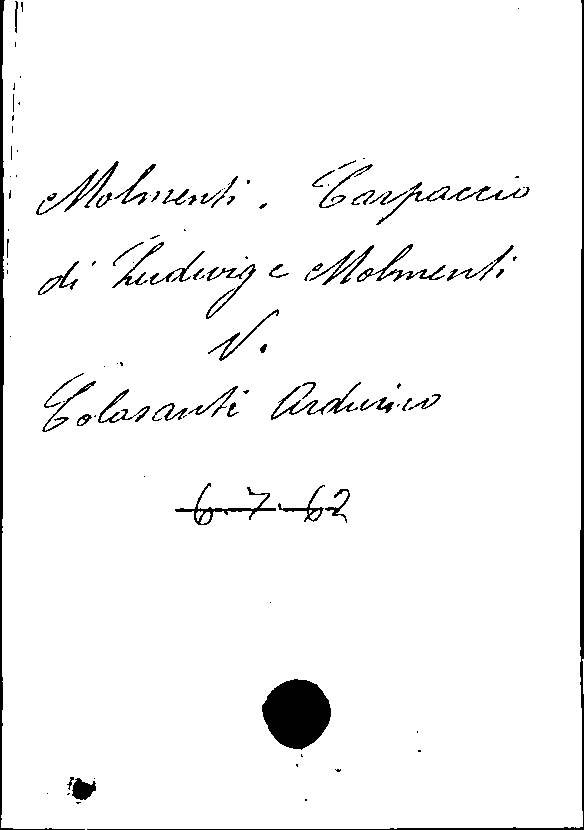 Molmenti. Carpaccio
di Ludwig e Molmenti
V.
Colasanti Arduino
6.7.62